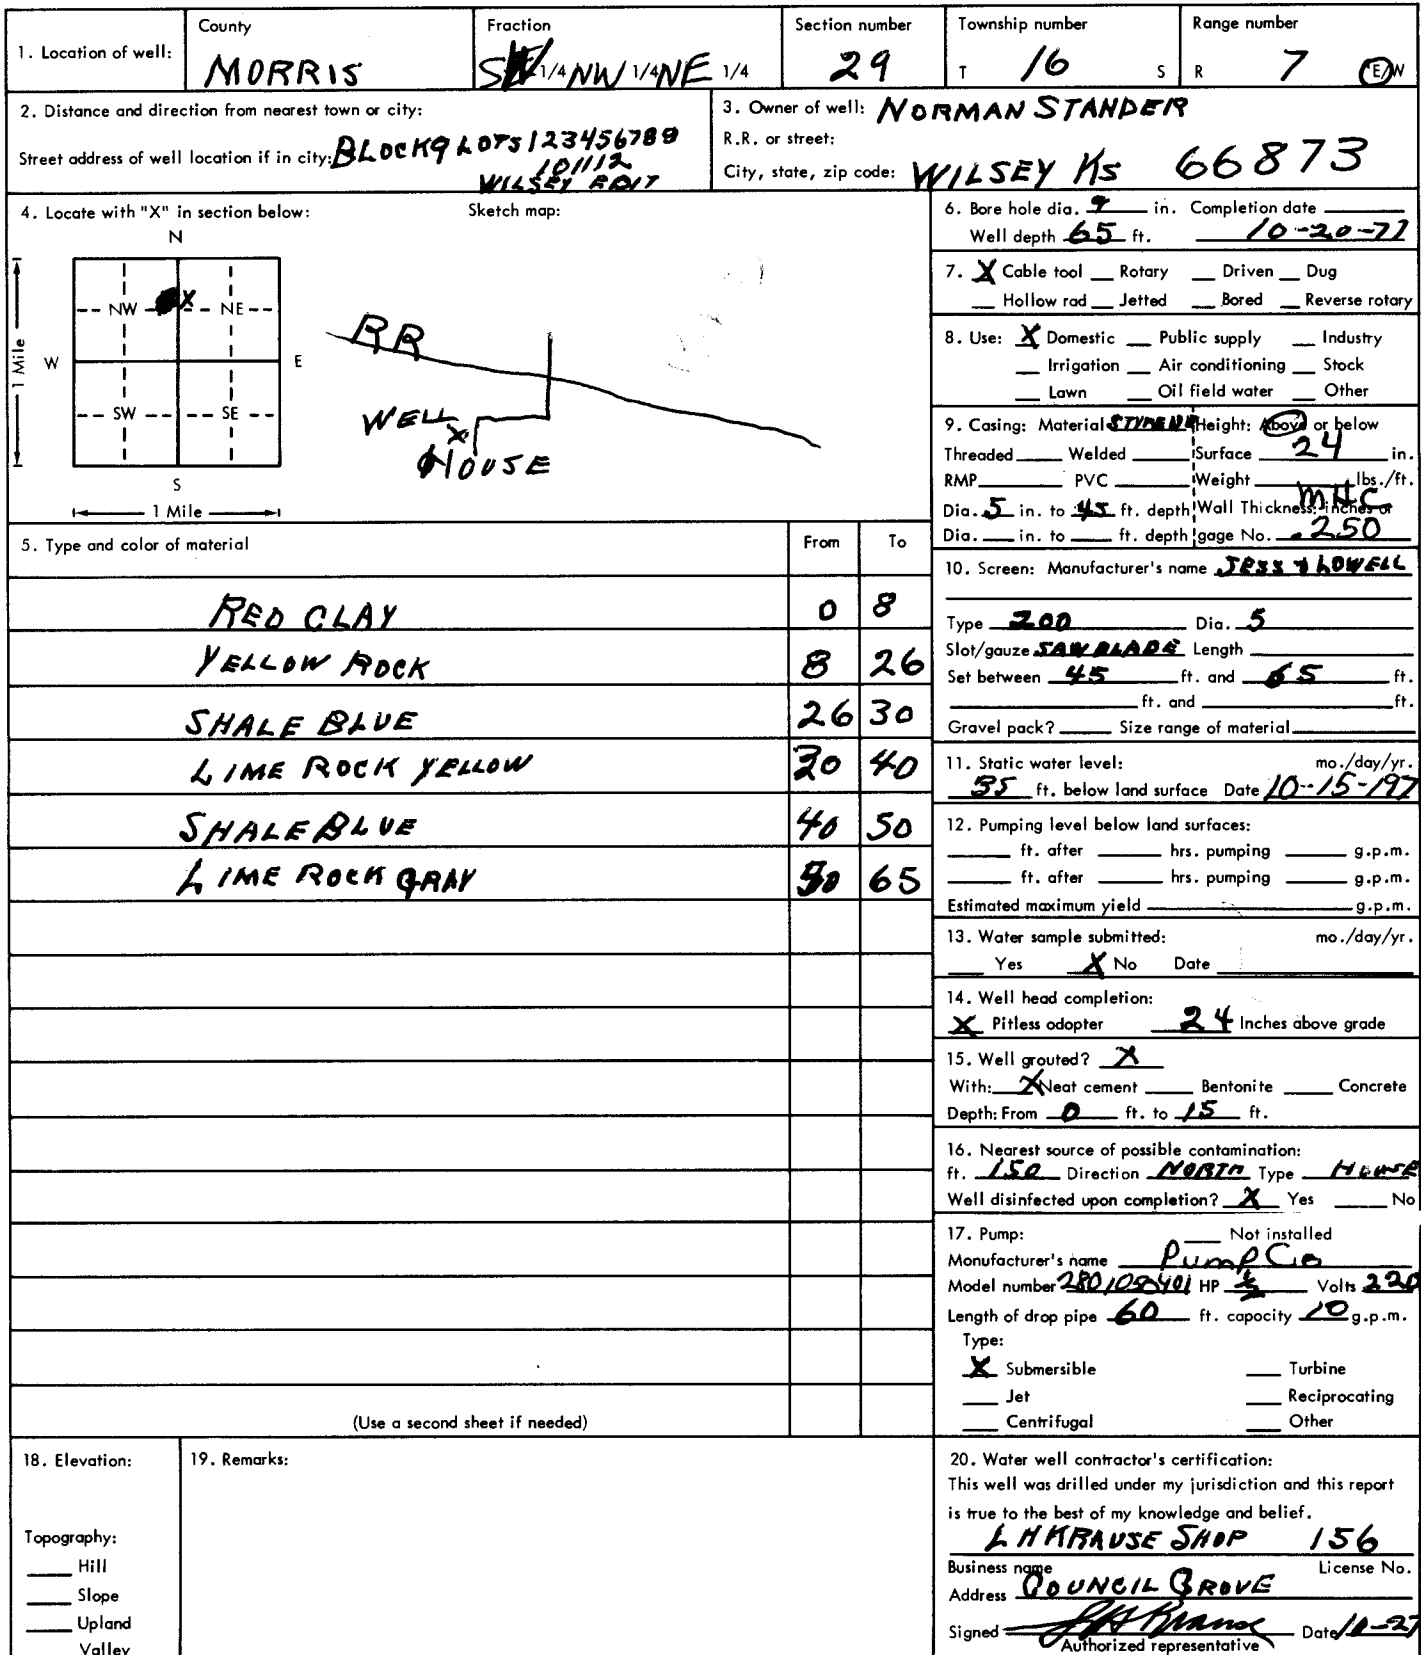 1. Location of well:
County
MORRIS
Fraction
1/4 NW 1/4 NE 1/4
Section number
29
Township number
T 16 S
Range number
R 7 E/W
2. Distance and direction from nearest town or city:
Street address of well location if in city: BLOCK 9 LOTS 123456789
101112
WILSEY EDIT
3. Owner of well: NORMAN STANDER
R.R. or street:
City, state, zip code: WILSEY KS 66873
4. Locate with "X" in section below:
Sketch map:
N
NW X NE
W E
SW SE
S
1 Mile
1 Mile
RR
WELL
X
HOUSE
5. Type and color of material From To
RED CLAY 0 8
YELLOW ROCK 8 26
SHALE BLUE 26 30
LIME ROCK YELLOW 30 40
SHALE BLUE 40 50
LIME ROCK GRAY 50 65
(Use a second sheet if needed)
6. Bore hole dia. 9 in. Completion date
Well depth 65 ft. 10-20-77
7. X Cable tool Rotary Driven Dug
Hollow rad Jetted Bored Reverse rotary
8. Use: X Domestic Public supply Industry
Irrigation Air conditioning Stock
Lawn Oil field water Other
9. Casing: Material STYRENE Height: Above or below
Threaded Welded Surface 24 in.
RMP PVC Weight lbs./ft.
Dia. 5 in. to 45 ft. depth Wall Thickness: inches or
Dia. in. to ft. depth gage No. .250
10. Screen: Manufacturer's name JESS & LOWELL
Type 200 Dia. 5
Slot/gauze SAW BLADE Length
Set between 45 ft. and 65 ft.
ft. and ft.
Gravel pack? Size range of material
11. Static water level: mo./day/yr.
35 ft. below land surface Date 10-15-197
12. Pumping level below land surfaces:
ft. after hrs. pumping g.p.m.
ft. after hrs. pumping g.p.m.
Estimated maximum yield g.p.m.
13. Water sample submitted: mo./day/yr.
Yes X No Date
14. Well head completion:
X Pitless odopter 24 Inches above grade
15. Well grouted? X
With: X Neat cement Bentonite Concrete
Depth: From 0 ft. to 15 ft.
16. Nearest source of possible contamination:
ft. 150 Direction NORTH Type HOUSE
Well disinfected upon completion? X Yes No
17. Pump: Not installed
Manufacturer's name Pump Co
Model number 2801050401 HP 1/2 Volts 220
Length of drop pipe 60 ft. capacity 10 g.p.m.
Type:
X Submersible Turbine
Jet Reciprocating
Centrifugal Other
18. Elevation:
Topography:
Hill
Slope
Upland
Valley
19. Remarks:
20. Water well contractor's certification:
This well was drilled under my jurisdiction and this report
is true to the best of my knowledge and belief.
L H KRAUSE SHOP 156
Business name License No.
Address COUNCIL GROVE
Signed L H Krause Date 10-27
Authorized representative